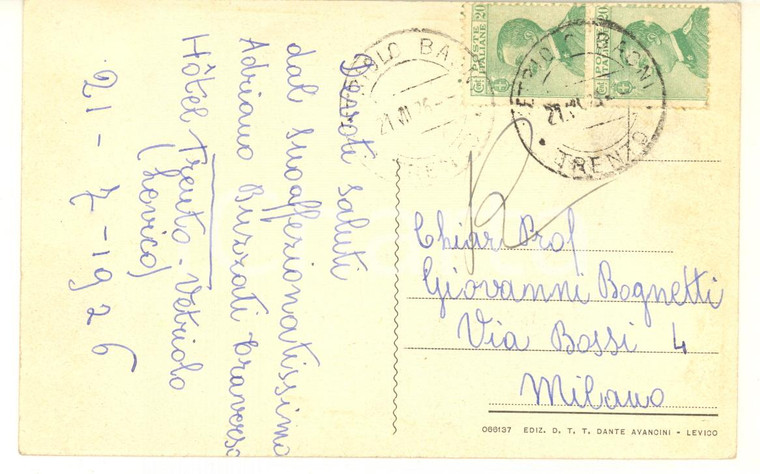 Devoti saluti
dal suo affezionatissimo
Adriano Buzzati Traverso
Hôtel Trento - Vetriolo
(Levico)
21 - 7 - 1926
POSTE ITALIANE
20
POSTE ITALIANE
20
VETRIOLO BAGNI
TRENTO
Chiar. Prof
Giovanni Bognetti
Via Bossi 4
Milano
066137 EDIZ. D. T. T. DANTE AVANCINI - LEVICO